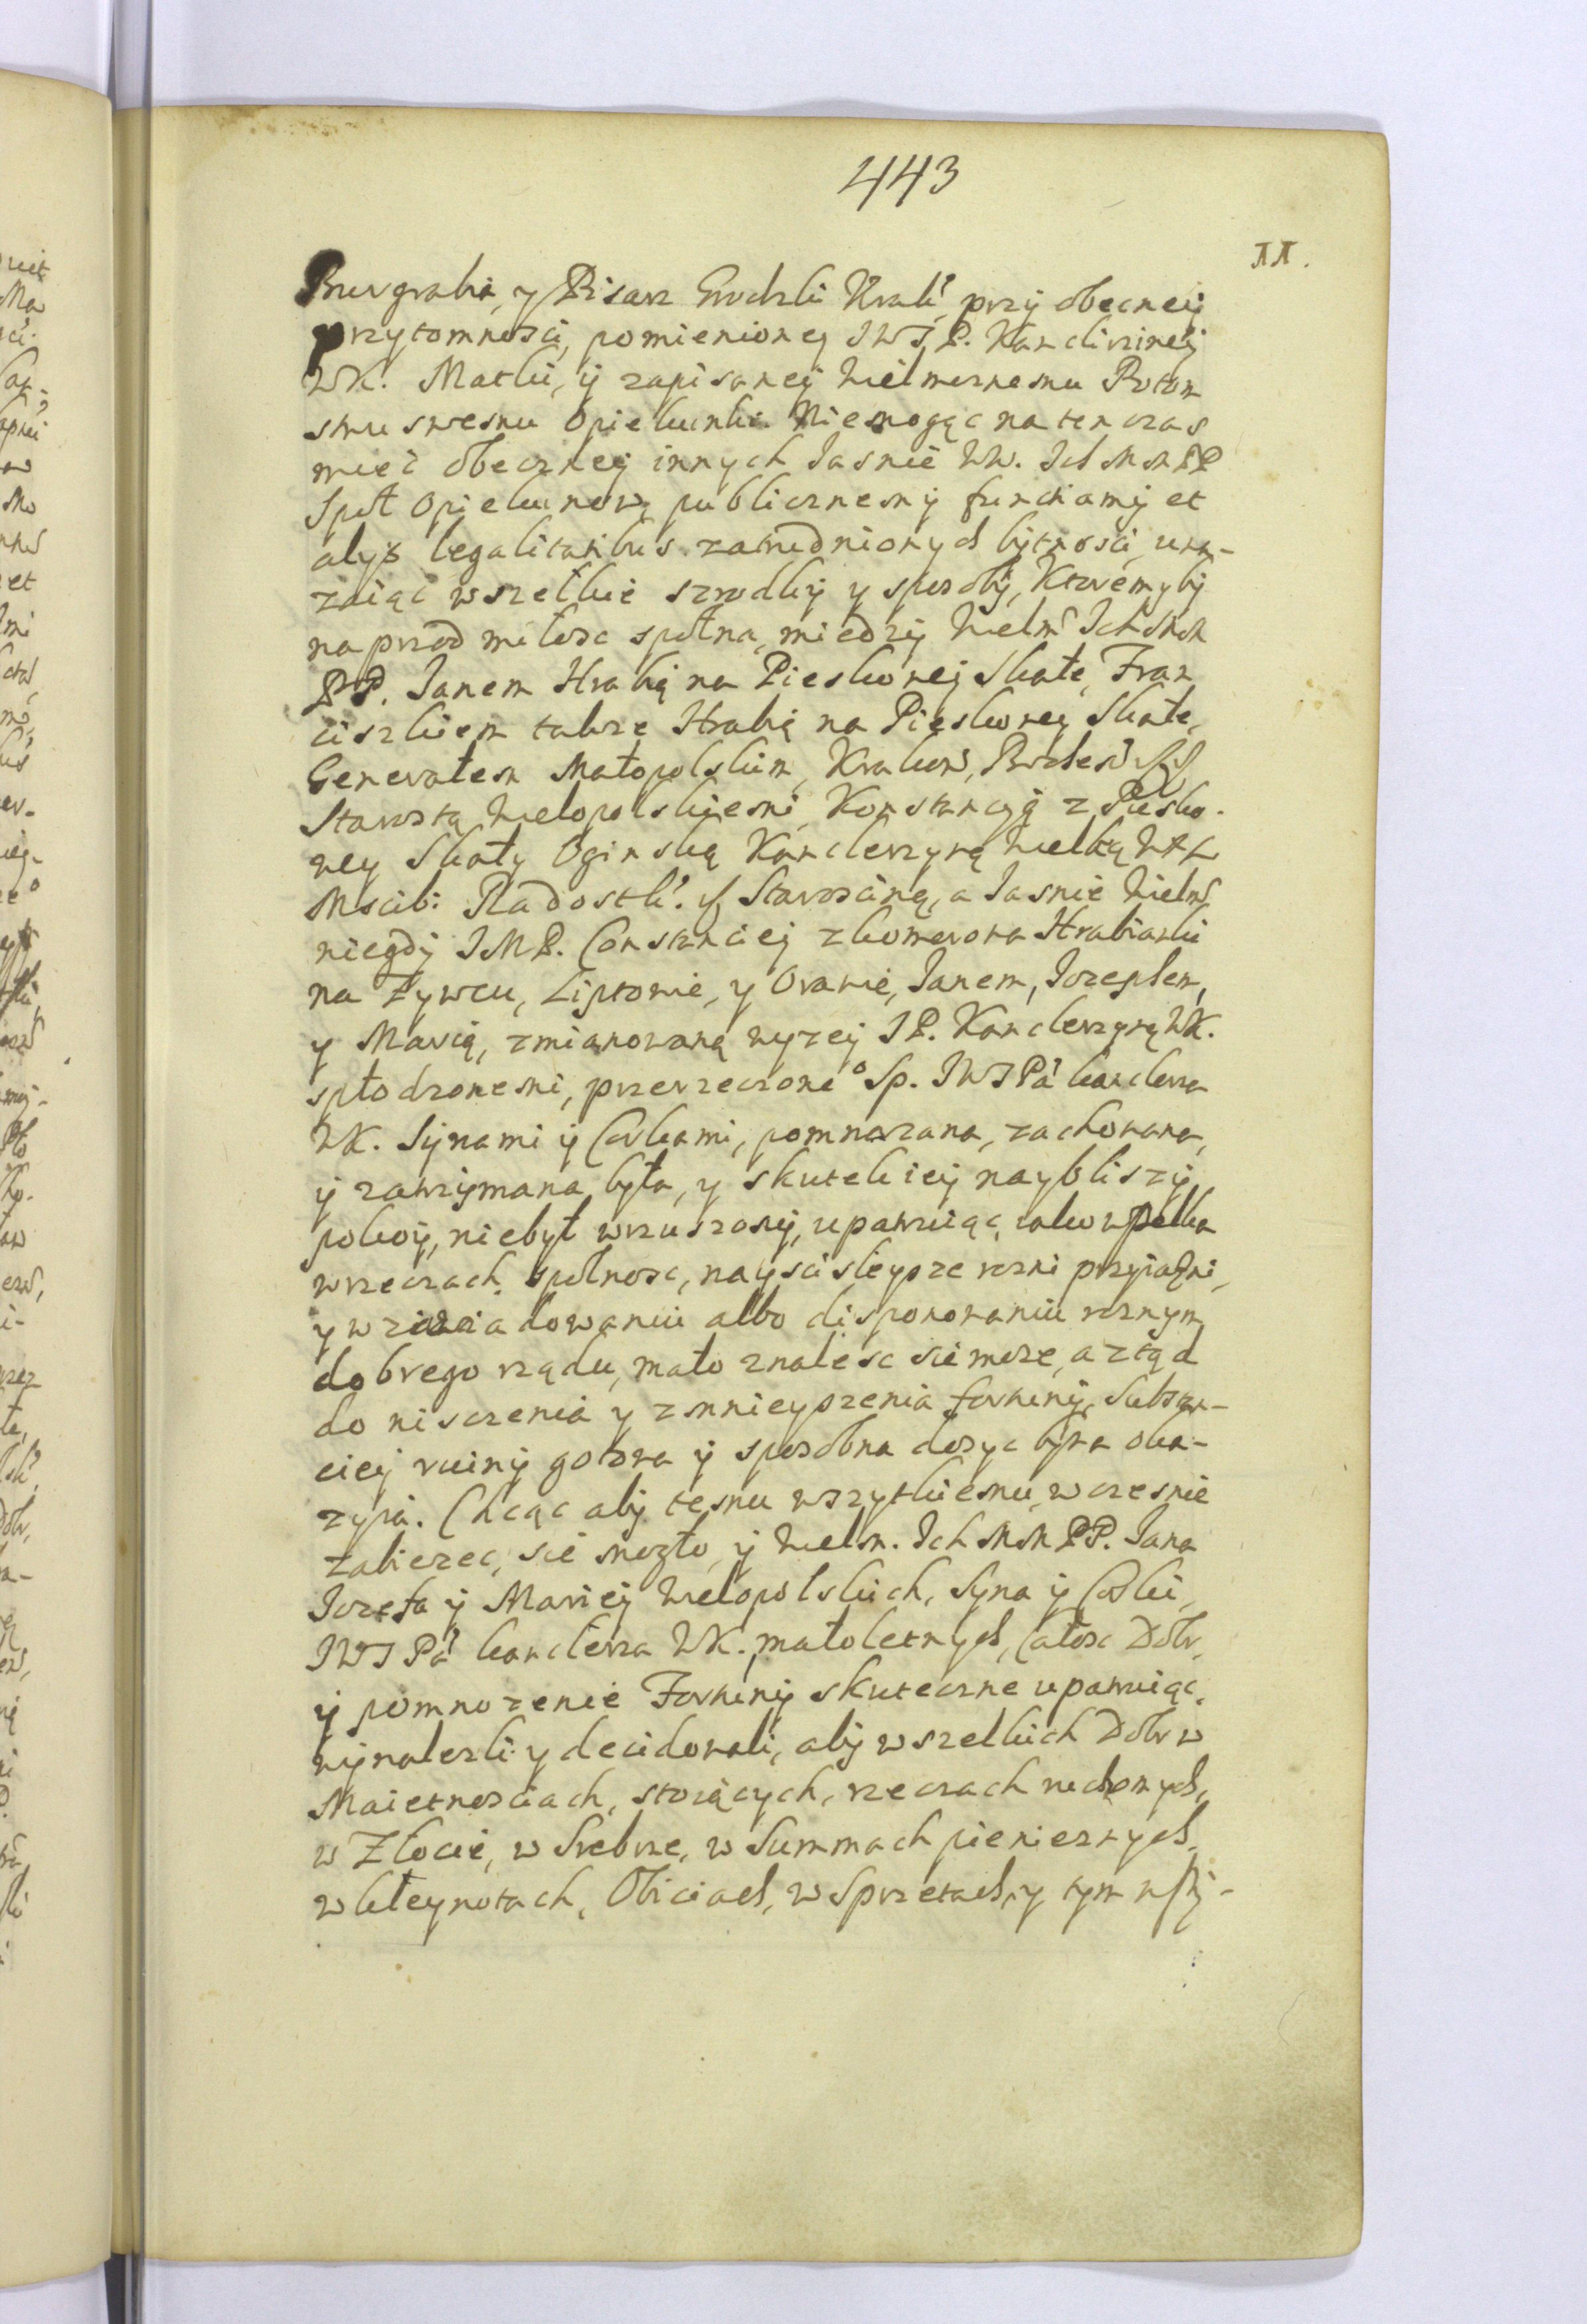 443
11.
Burgrabia, y Pisarz Grodzki Krak: przy obecney
przytomnosci, pomienioney JWJ P. Kanclirziney
WK. Matki, ÿ zapisaney Wielmoznemu Potom
stwu swemu Opiekunki. Niemogąc na ten czas
mieć obeczney innych Jasnie WW. Ich Mm PP
Społ Opiekunow, publicznemÿ funkciamÿ et
alys legalitatibus zatrudnionych bÿtnosci, uwa-
zaiąc wszelkie szrodkÿ y sposobÿ, Ktoremÿbÿ
na przod miłosc społna, miedzÿ Wielm Ich Mm
PP. Janem Hrabią na Pieskoweÿ Skale, Fran
ciszkiem takze Hrabią na Pieskowey Skale,
Generałem Małopolskim, Krakow,
Starostą Wielopolskiemi, Konstancyą z Piesko-
wey Skały Oginską Kanclerzyną Wielką WXL
Mscib: Radosck: Starosciną, a Jasnie Wielm
niegdÿ JMP. Constancieÿ z Komorowa Hrabianki
na Zywcu, Liptowie, y Orawie, Janem, Jozephem,
y Marią, zmianowaną wyzeÿ JP. Kanclerzyną WK.
spłodzonemi, przerzeczone° Sp. JWJ Pa Kanclerza
WK. Sÿnami ÿ Corkami, pomnozana, zachowana,
ÿ zatrzÿmana była, y skutekiey nayblizszÿ
pokoÿ, niebył wzruszonÿ, upatruiąc iako wszelka
w rzeczach społnosc, nayscisleysze rozni przyiazni,
y w zawiadowaniu albo disponowaniu roznym,
dobrego rządu, mało znalesc sie moze, a ztąd
do nisczenia y zmnieyszenia fortunÿ, Substan-
cieÿ ruinÿ gotowa ÿ sposobna dosyc bÿwa oka-
zyia. Chcąc abÿ temu wszytkiemu, wczesnie
zabiezec sie mogło, ÿ Wielm. Ich Mm PP. Jana
Jozefa ÿ Marieÿ Wielopolskich, Syna ÿ Corki,
JWJ Pa Kanclerza WK. małoletnych, całosc Dobr,
ÿ pomnozenie Fortunÿ skuteczne upatruiąc,
wÿnalezli y decidowali, abÿ wszelkich Dobr w
Maietnosciach, stoiących, rzeczach ruchomych,
w Złocie, w Srebrze, w Summach pienieznych,
w Kleynotach, Obiciach, w Sprzetach, y tym